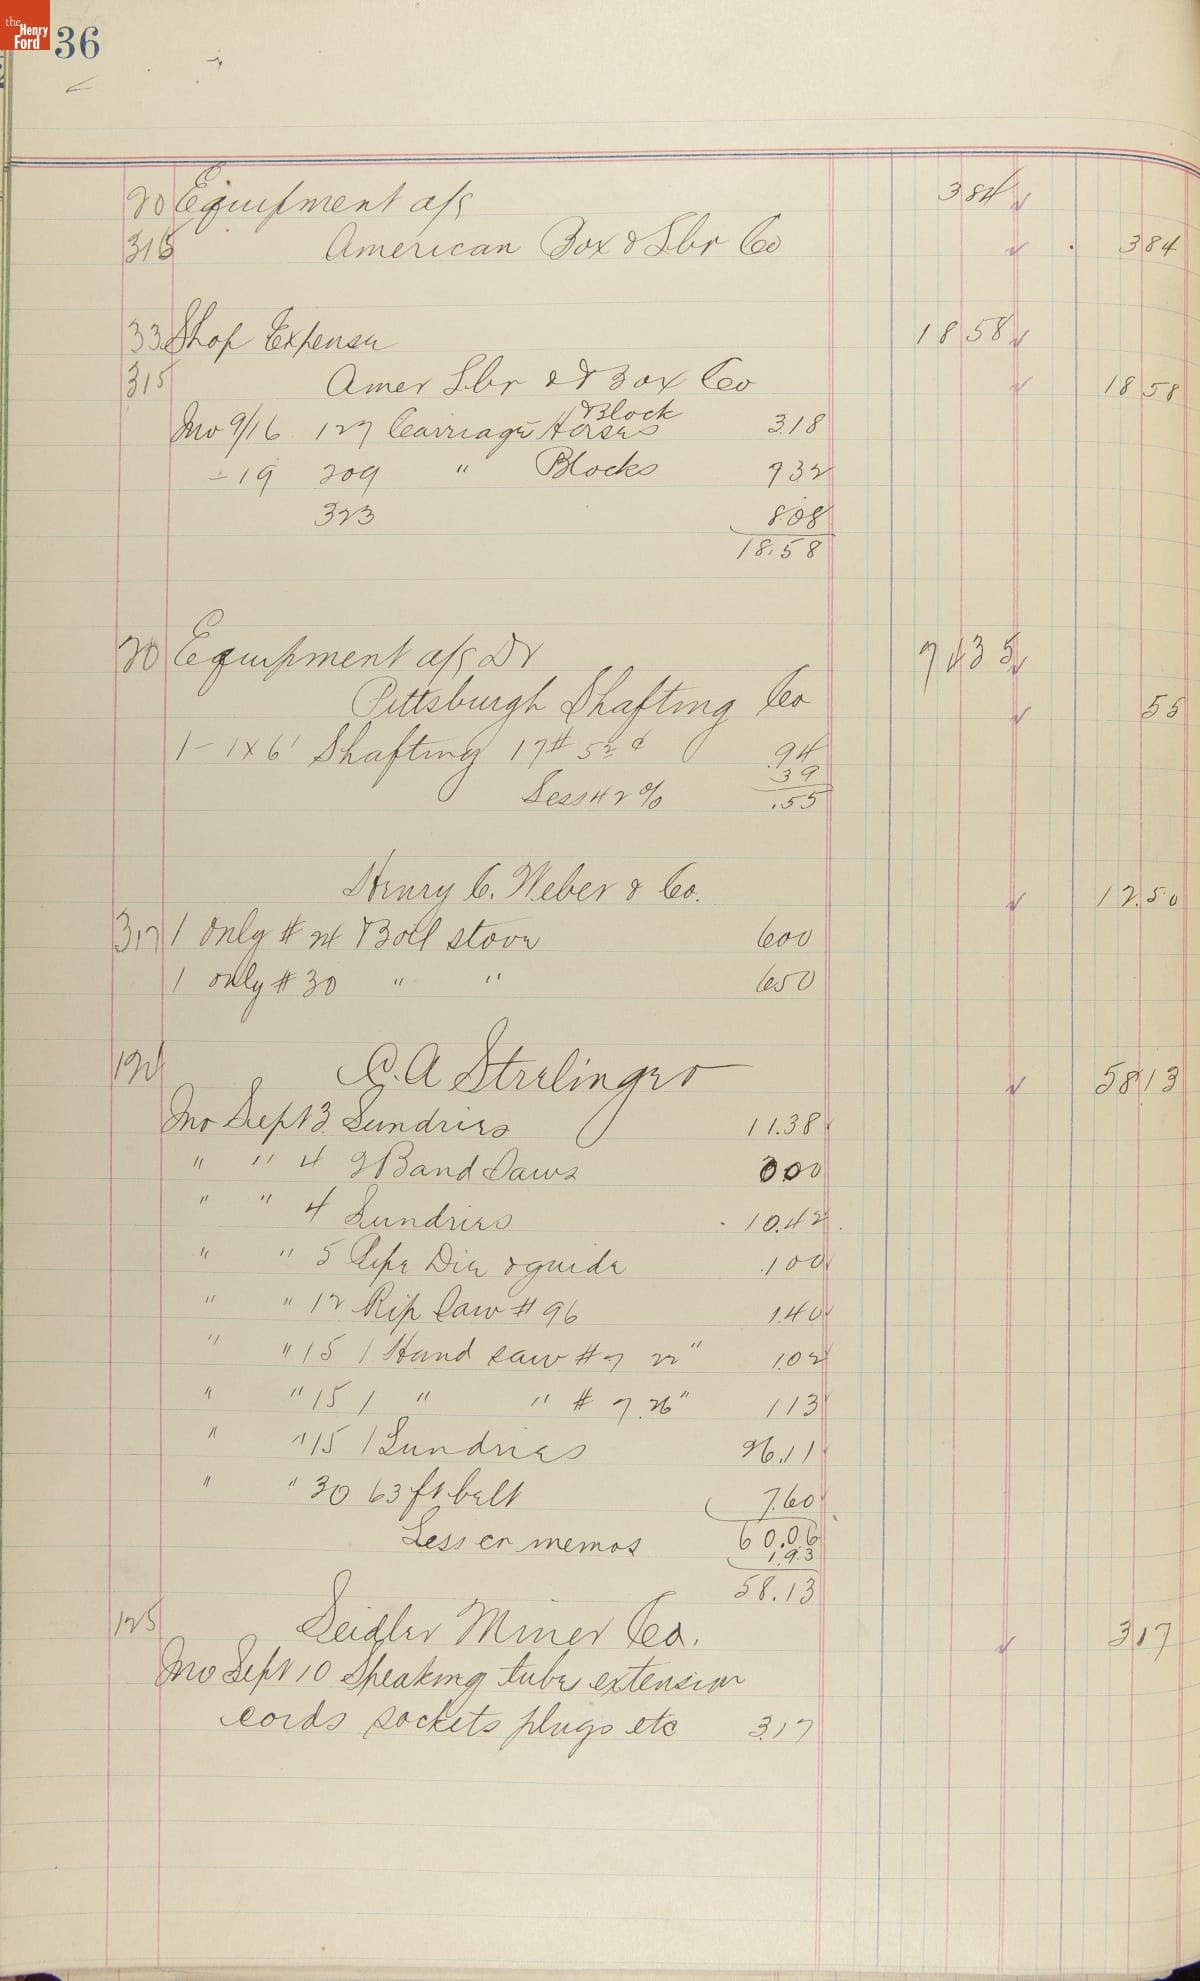 the Henry Ford
36
20 Equipment a/c 3 84
315 American Box & Lbr Co 3 84
33 Shop Expense 18 58
315 Amer Lbr & Box Co 18 58
Block
Inv 9/16 127 Carriage Horses 3.18
" 19 209 " Blocks 7 32
323 8.08
18.58
20 Equipment a/c Dr 74 35
Pittsburgh Shafting Co 55
1 - 1 x 6' Shafting 17# 5 ½ ¢ .94
39
Less 42% .55
Henry C. Weber & Co. 12.50
317 1 only # 24 Boil stove 6 00
1 only # 30 " " 6 50
C. A Strelinger 58 13
Inv Sept 3 Sundries 11.38
" " 4 2 Band Saws 0 00
" " 4 Sundries 10.42
" " 5 Pipe Die & guide 1 00
" " 12 Rip Saw # 96 1.40
" " 15 1 Hand saw # 7 22" 1.02
" " 15 1 " " # 7. 26" 1 13
" " 15 1 Sundries 26.11
" " 30 63 ft belt 7.60
Less cr memos 60.06
1.93
58.13
125 Seidler Miner Co. 3 17
Inv Sept 10 Speaking tube extension
cords sockets plugs etc 3.17